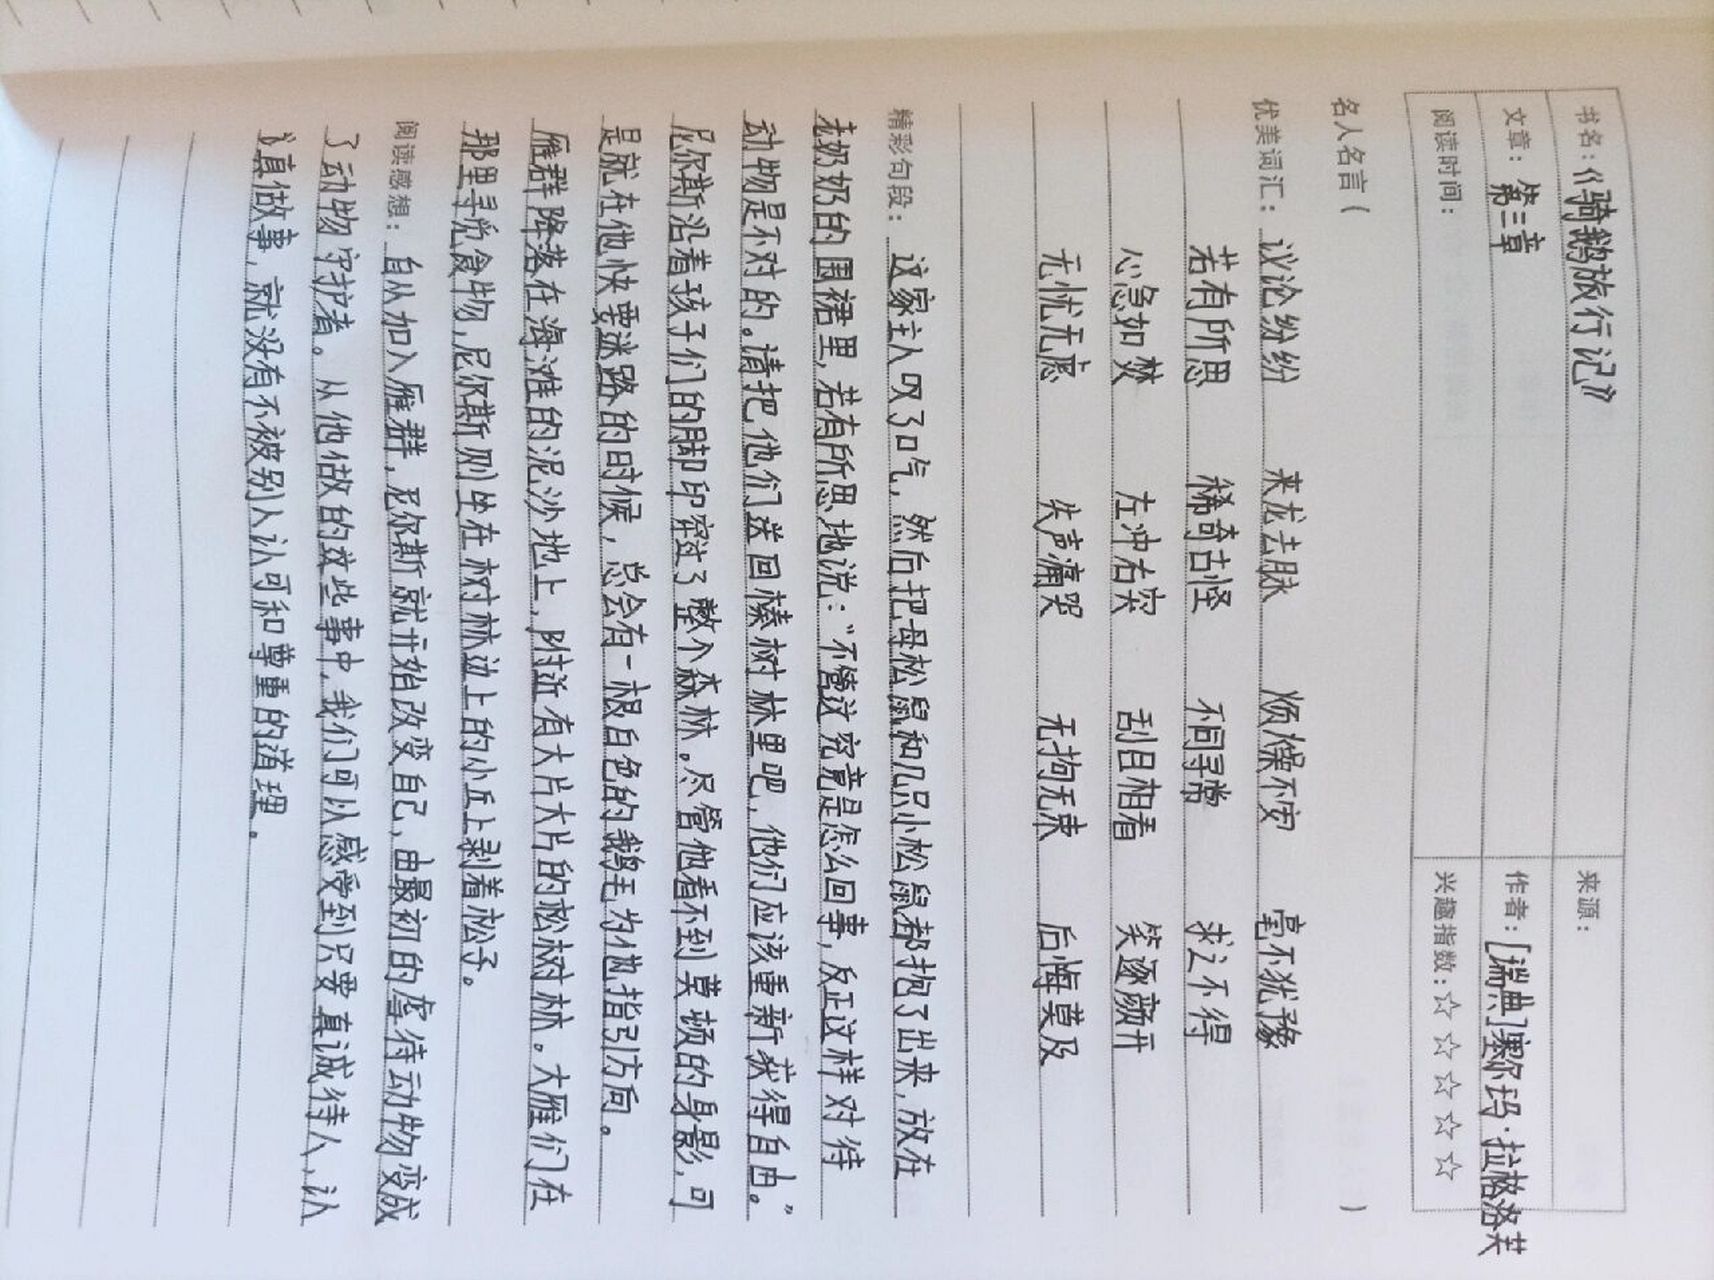 书名：《骑鹅旅行记》 来源：
文章：第三章 作者：[瑞典]塞尔玛·拉格洛芙
阅读时间： 兴趣指数：☆☆☆☆☆
名人名言（ ）
优美词汇：议论纷纷 来龙去脉 烦燥不安 毫不犹豫
若有所思 稀奇古怪 不同寻常 求之不得
心急如焚 左冲右突 刮目相看 笑逐颜开
无忧无虑 失声痛哭 无拘无束 后悔莫及
精彩句段：这家主人叹了口气，然后把母松鼠和几只小松鼠都抱了出来，放在
老奶奶的围裙里，若有所思地说：“不管这究竟是怎么回事，反正这样对待
动物是不对的。请把他们送回榛树林里吧，他们应该重新获得自由。”
尼尔斯沿着孩子们的脚印穿过了整个森林。尽管他看不到莫顿的身影，可
是就在他快要迷路的时候，总会有一根白色的鹅毛为他指引方向。
雁群降落在海滩的泥沙地上，附近有大片大片的松树林。大雁们在
那里寻觅食物，尼尔斯则坐在树林边上的小丘上剥着松子。
阅读感想：自从加入雁群，尼尔斯就开始改变自己，由最初的虐待动物变成
了动物守护者。从他做的这些事中，我们可以感受到只要真诚待人，认
认真做事，就没有不被别人认可和尊重的道理。